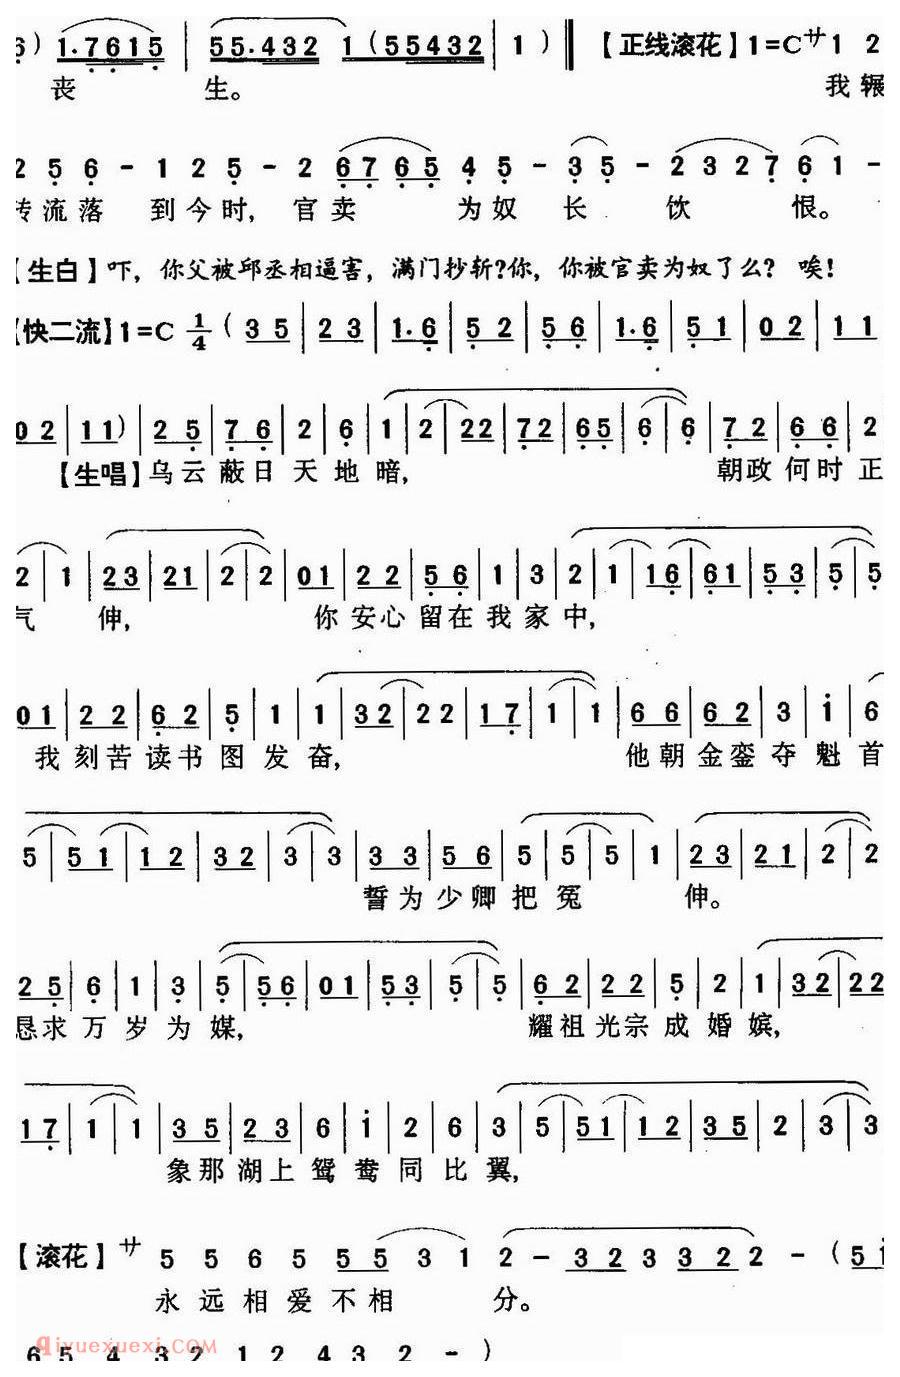 6) 1·7615 | 55·432 1(55432 | 1) ‖ 【正线滚花】1=C サ 1 2
丧 生。 我辗
2 5 6 - 1 2 5 - 2 6765 4 5 - 3 5 - 2327 6 1 -
转流落 到今时, 官卖 为奴 长 饮 恨。
【生白】吓，你父被邱丞相逼害，满门抄斩?你，你被官卖为奴了么? 唉!
【快二流】1=C 1/4 (35 | 23 | 1·6 | 52 | 56 | 1·6 | 51 | 02 | 11
02 | 11) | 25 | 76 | 2 | 6 | 1 | 2 | 22 | 72 | 65 | 6 | 6 | 72 | 66 | 2
【生唱】乌云蔽日天地暗, 朝政何时正
2 | 1 | 23 | 21 | 2 | 2 | 01 | 22 | 56 | 1 | 3 | 2 | 1 | 16 | 61 | 53 | 5 | 5
气 伸, 你安心留在我家中,
01 | 22 | 62 | 5 | 1 | 1 | 32 | 22 | 17 | 1 | 1 | 66 | 62 | 3 | i | 6
我刻苦读书图发奋, 他朝金銮夺魁首
5 | 51 | 12 | 32 | 3 | 3 | 33 | 56 | 5 | 5 | 5 | 1 | 23 | 21 | 2 | 2
誓为少卿把冤 伸。
25 | 6 | 1 | 3 | 5 | 56 | 01 | 53 | 5 | 5 | 62 | 22 | 5 | 2 | 1 | 32 | 22
恳求万岁为媒, 耀祖光宗成婚嫔,
17 | 1 | 1 | 35 | 23 | 6 | i | 2 | 6 | 3 | 5 | 51 | 12 | 35 | 2 | 3 | 3
象那湖上鸳鸯同比翼,
【滚花】サ 5 5 6 5 55 3 1 2 - 32 3 322 - (5i
永远相爱不相 分。
65 4 32 12 43 2 -)
Qiyuexuexi.COM